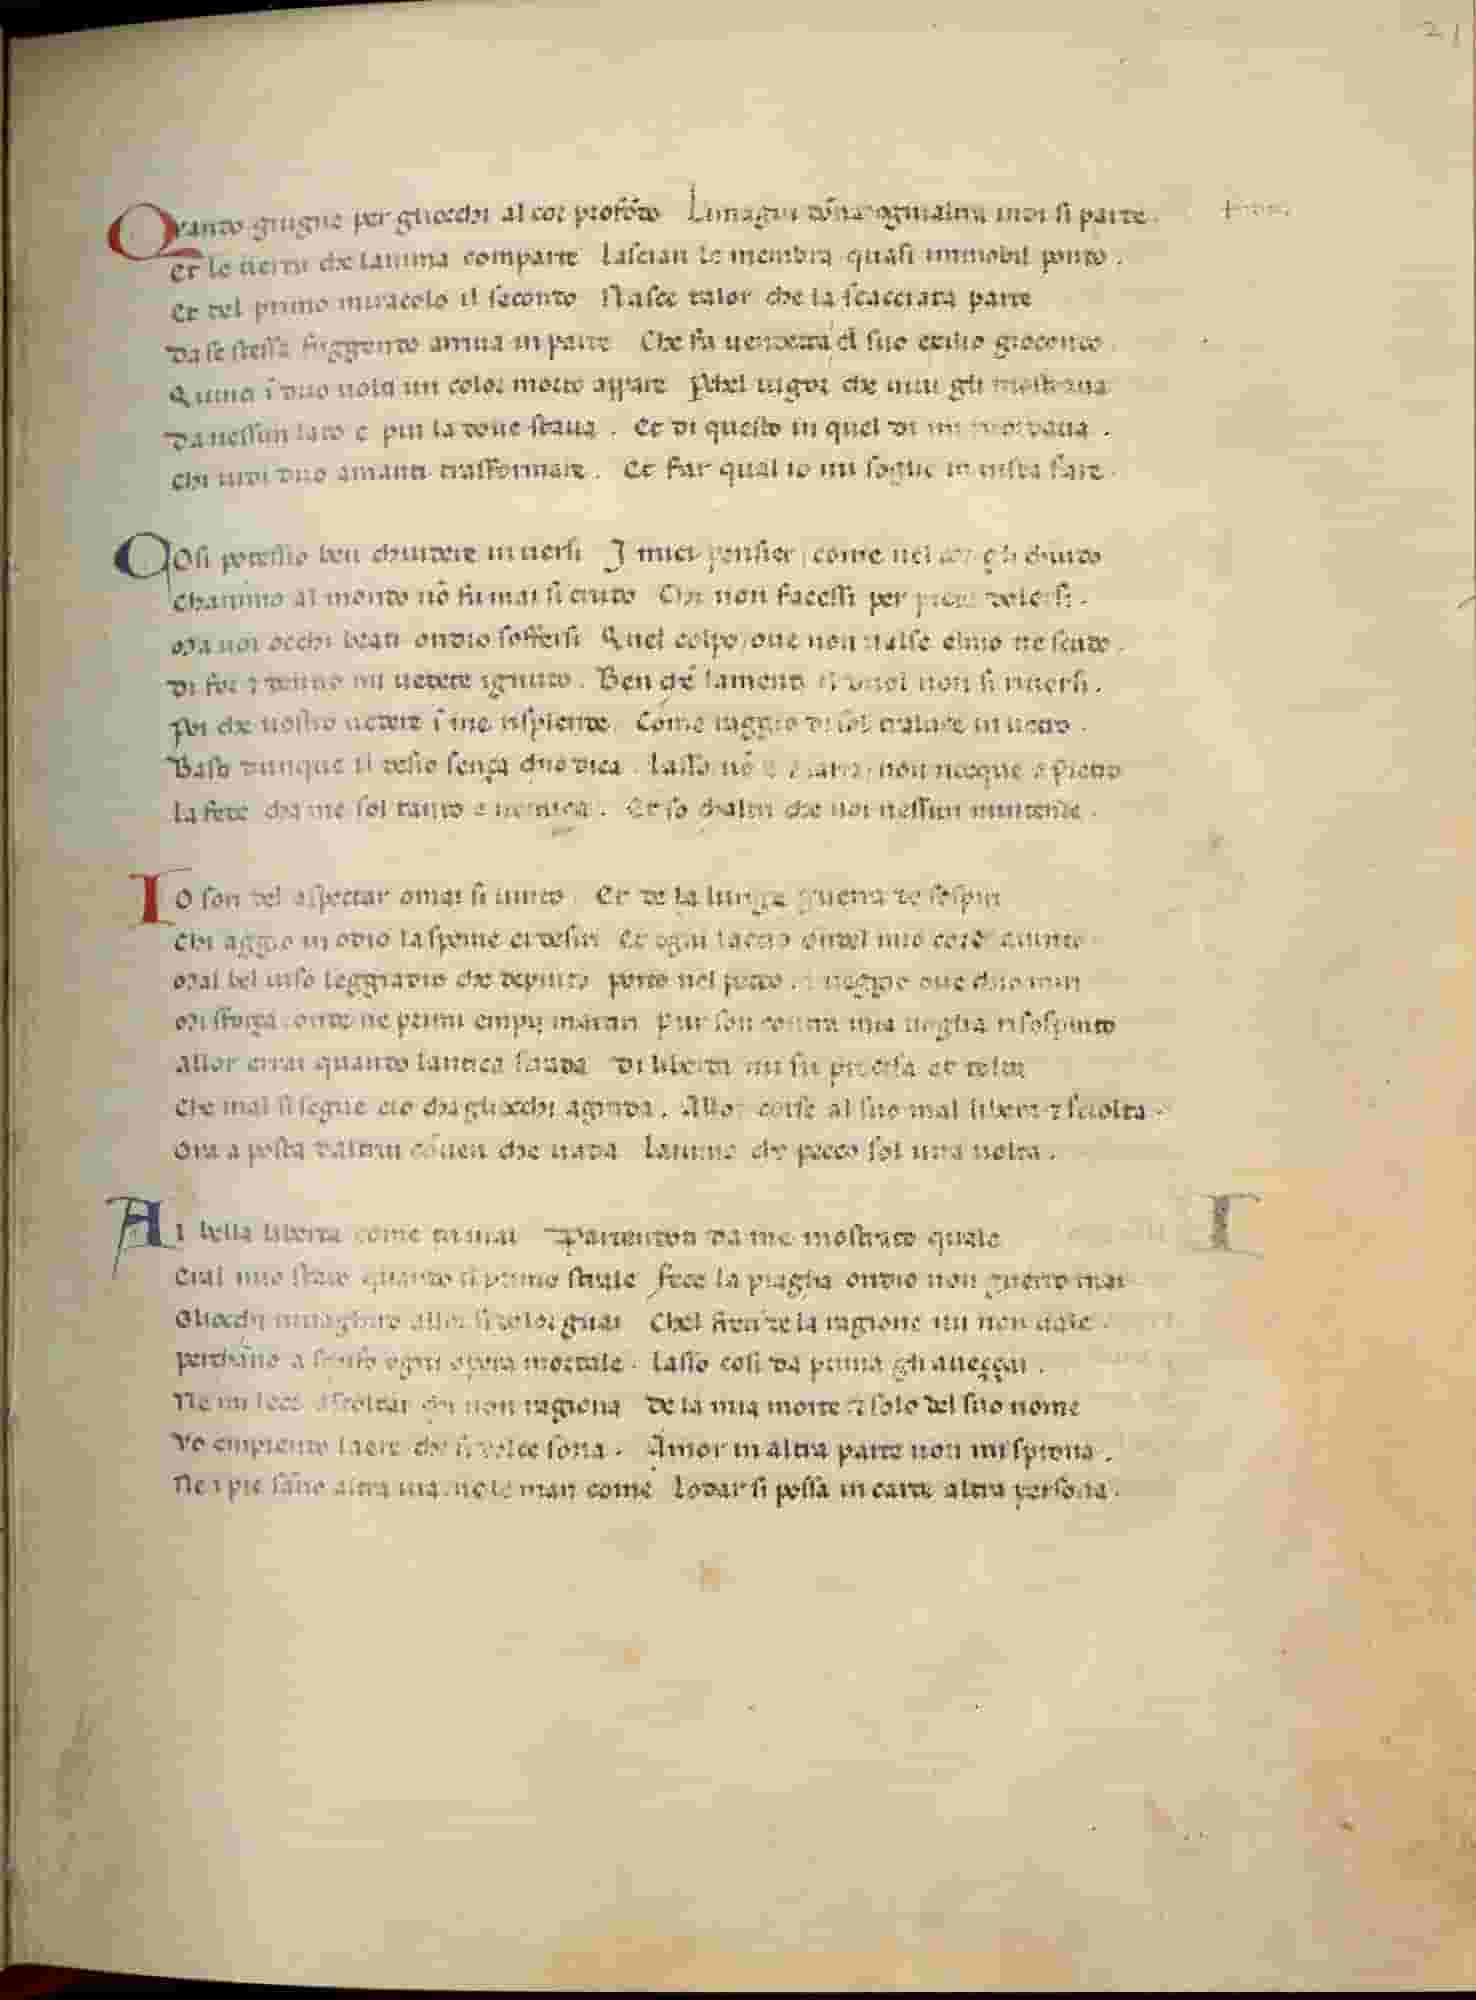 21
Quando giugne per gliocchi al cor profōdo Limagin dōna ogni altra indi si parte.
Et le uertu che lanima comparte Lascian le membra quasi immobil pondo.
Et del primo miracolo il secondo Nasce talor che la scacciata parte
Da se stessa fuggendo arriua in parte Che fa uendetta el suo exilio giocondo.
Quinci ī duo uolti un color morto appare Perchel uigor che uiui gli mostraua
Da nessun lato e piu la doue staua. Et di questo in quel di mi ricordaua.
Chi uidi duo amanti trasformare. Et far qual io mi soglio in uista fare.
Cosi potessio ben chiudere in uersi I miei pensier come nel cor gli chiudo
Chanimo al mondo nō fu mai si crudo Chi non facessi per pieta dolersi.
Ma uoi occhi beati ondio soffersi Quel colpo oue non ualse elmo ne scudo.
Di for 7 dentro mi uedete ignudo. Ben che lamenti il duol non si riuersi.
Poi che uostro uedere ī me risplende Come raggio di sol traluce in uetro.
Basti dunque il desio senza chio dica. Lasso nō a Maria non nocque a Pietro
La fede cha me sol tanto e nemica. Et so chaltri che uoi nessun mintende.
Io son del aspectar omai si uinto. Et de la lunga guerra de sospiri
Chi aggio in odio la speme e i desiri Et ogni laccio ondel mio core e auinto
Mal bel uiso leggiadro che depinto porto nel pecto. 7 ueggio oue chio miri
Mi sforza. onde ne primi empij martiri Pur son contra mia uoglia risospinto
Allor errai quando lantica strada Di liberta mi fu precisa et tolta
Che mal si segue cio cha gliocchi agrada. Allor corse al suo mal libera 7 sciolta.
Ora a posta daltrui cōuen che uada Lanima che pecco sol una uolta.
Ai bella liberta come tu mai Partendoti da me mostrato quale
Eral mio stato quando il primo strale Fece la piaga ondio non guerro mai
Gliocchi inuaghiro allor si de lor guai Chel fren de la ragione iui non uale.
perchāno a schifo ogni opera mortale. Lasso cosi da prima gli auezzai.
Ne mi lece ascoltar chi non ragiona De la mia morte 7 solo del suo nome
Vo empiendo laere che si dolce sona. Amor in altra parte non mi sprona.
Ne i pie sāno altra uia. ne le man come Lodar si possa in carte altra persona.